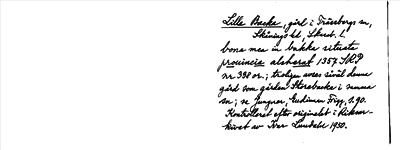 Lille Backa, gård i Trässbergs sn,
Skånings hd, Skarab. l.
bona mea in bakka situata
prouincia alsharat 1357 SRP
nr 388 or.; troligen avses såväl denna
gård som gården Storebacka i samma
sn; se Jungner, Gudinnan Frigg, s. 90.
Kontrollerat efter originalet i Riksar-
kivet av Ivar Lundahl 1950.